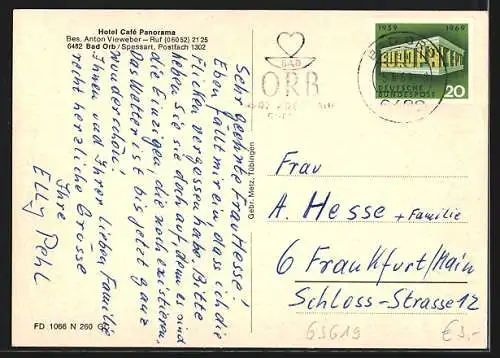 Hotel Café Panorama
Bes. Anton Vieweber – Ruf (06052) 2125
6482 Bad Orb / Spessart, Postfach 1302
Sehr geehrte Frau Hesse!
Eben fällt mir ein, dass ich die
Flicken vergessen habe. Bitte
heben Sie sie doch auf, denn es sind
die Einzigen, die noch existieren.
Das Wetter ist bis jetzt ganz
wunderschön!
Ihnen und Ihrer lieben Familie
recht herzliche Grüsse
Ihre
Elly Pehl
FD 1066 N 260 GD
Gebr. Metz, Tübingen
BAD
ORB
1959 1969
EUROPA CEPT
DEUTSCHE
BUNDESPOST
20
Frau
A. Hesse + Familie
6 Frankfurt/Main
Schloss-Strasse 12
63619
€3,-